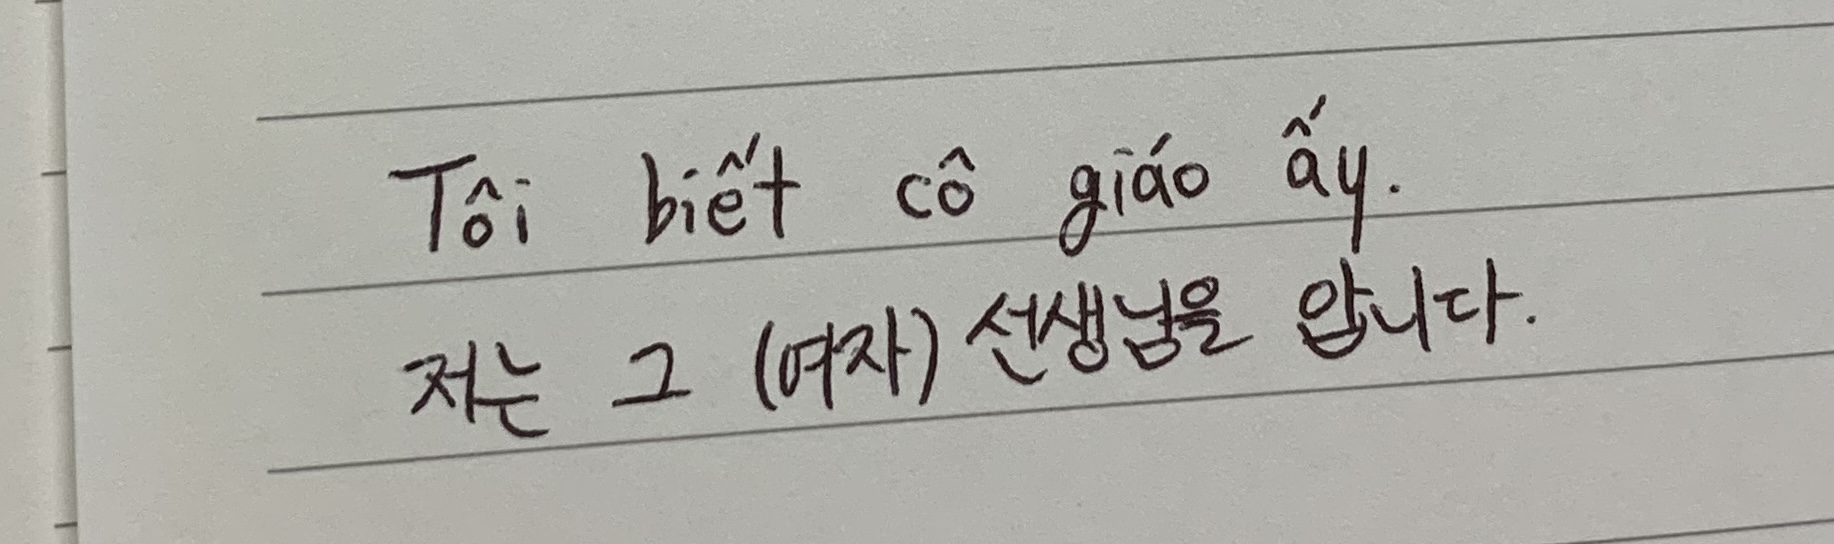 Tôi biết cô giáo ấy.
저는 그 (여자) 선생님을 압니다.